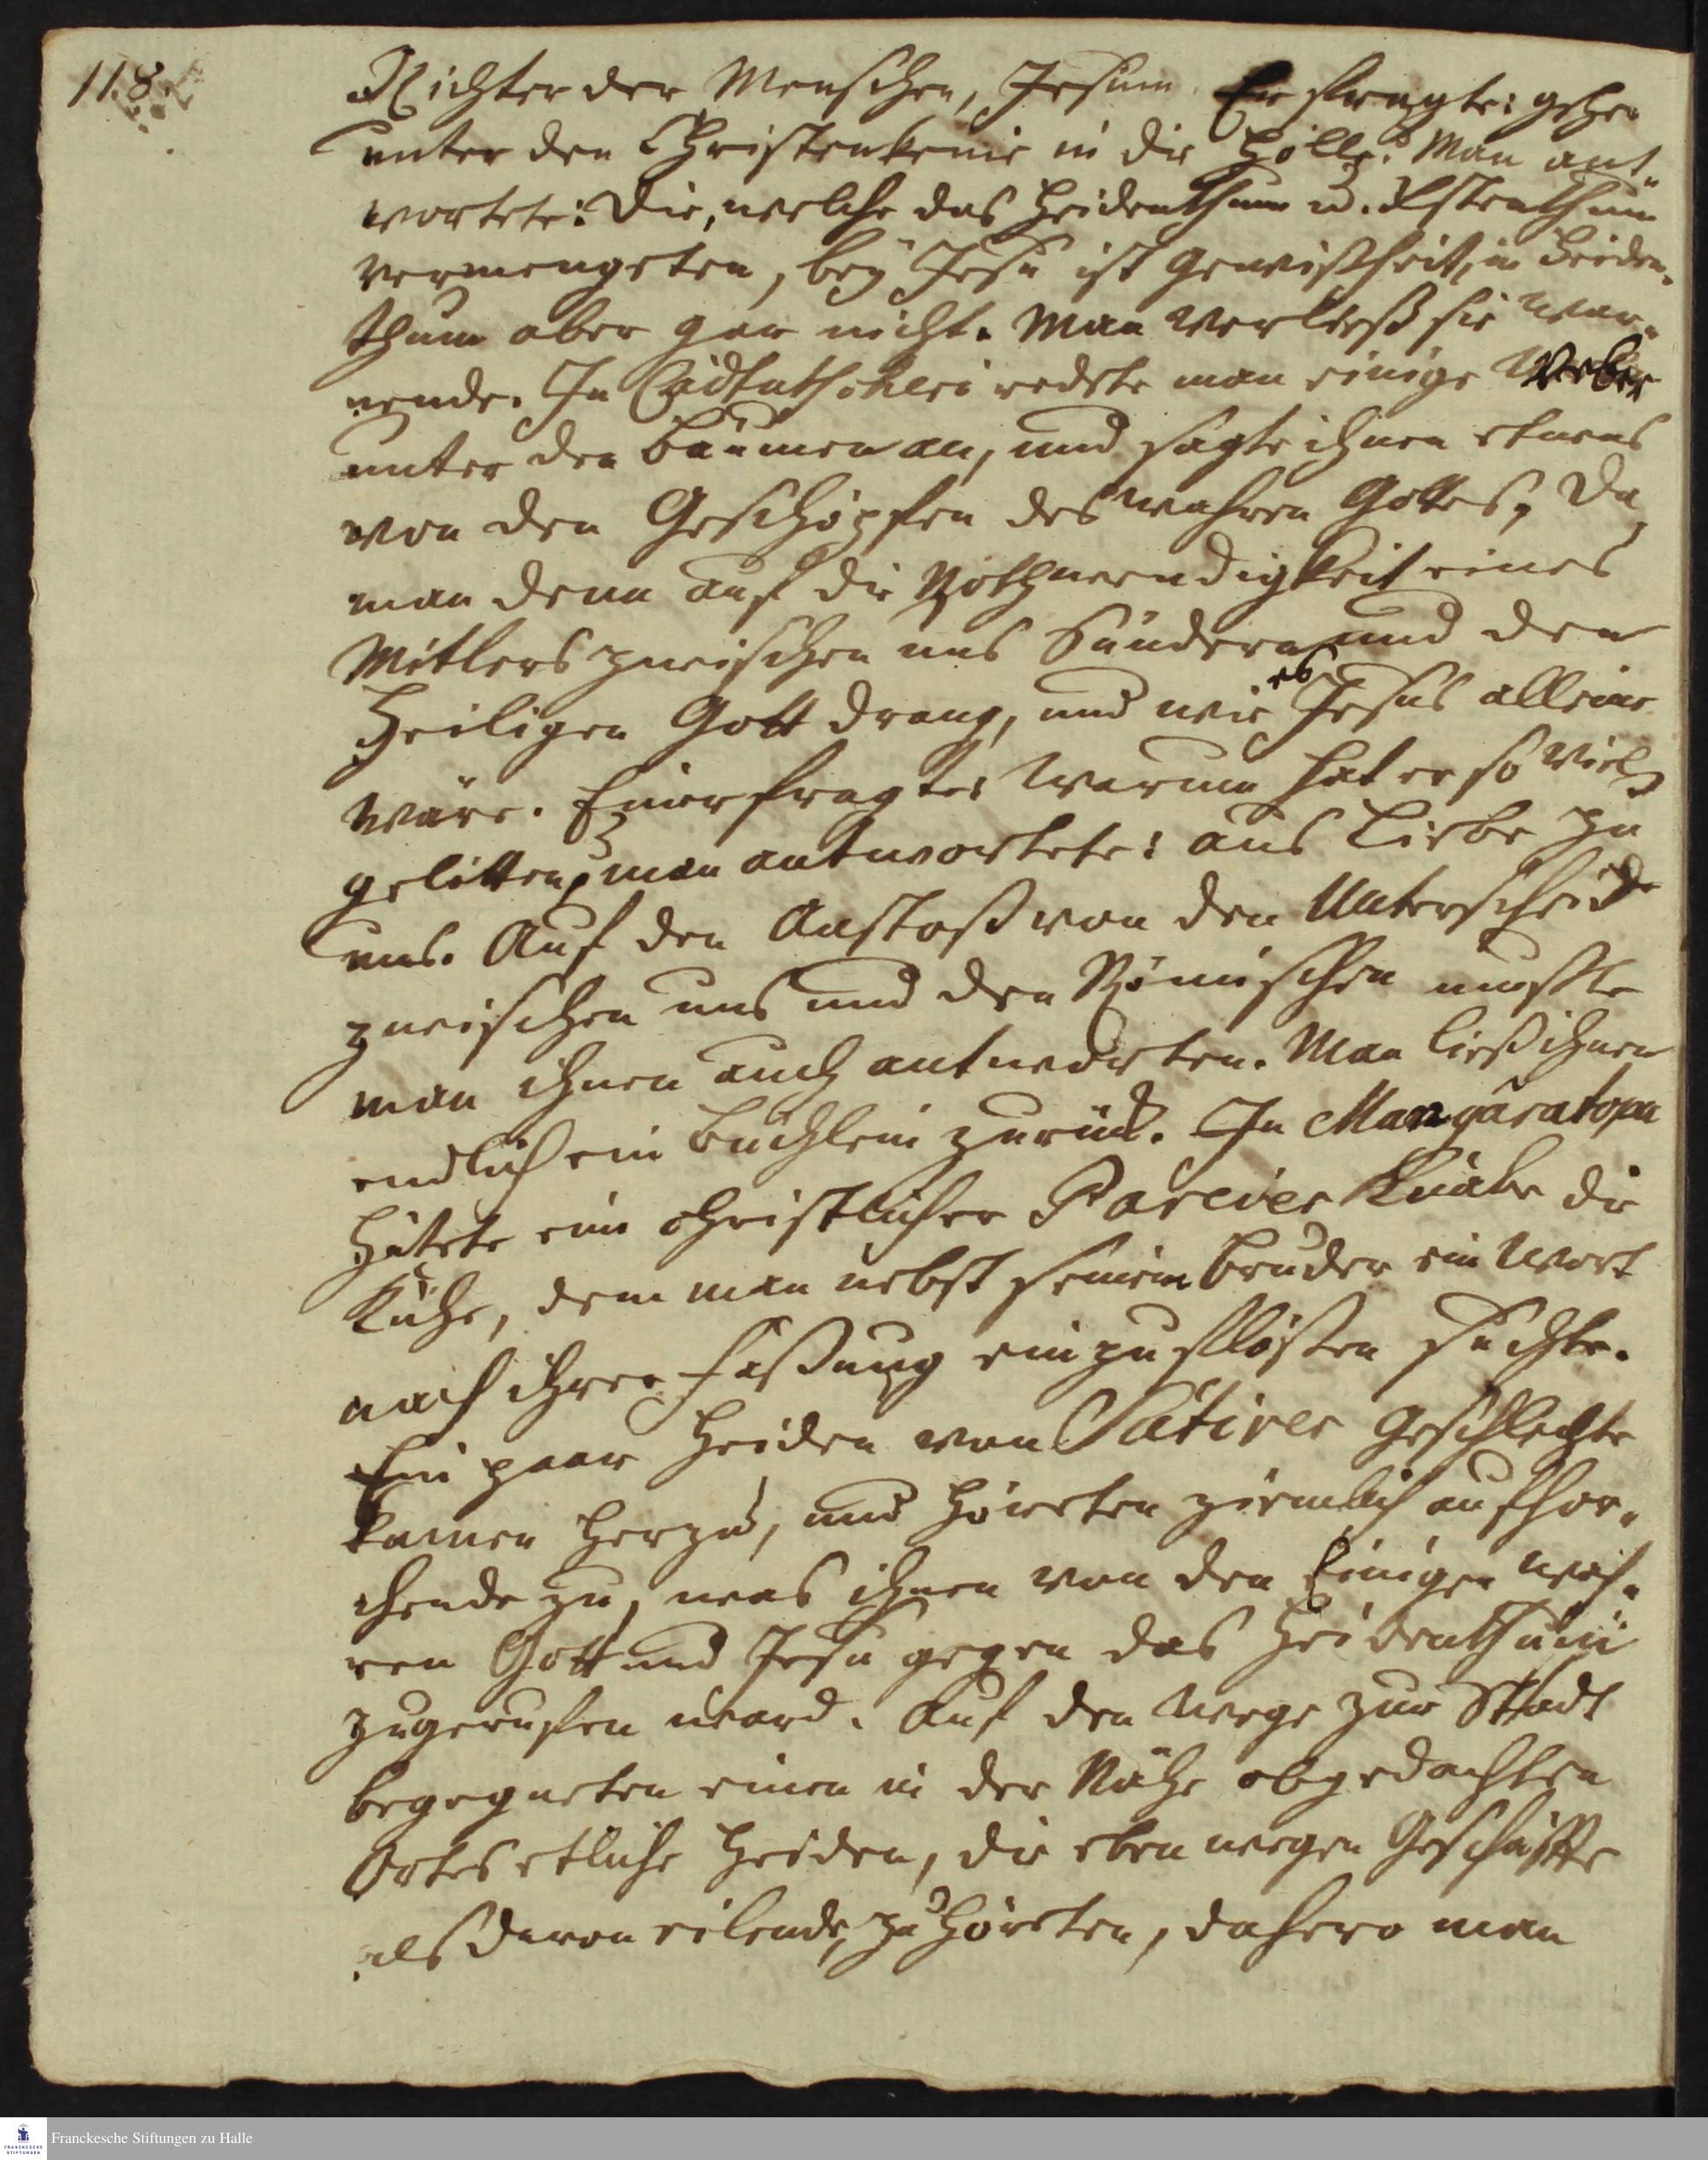 118.
Richter der Menschen, Jesum. Er fragte: gehen
unter den Christen keine in die Hölle? Man ant„
wortete: Die, welche das Heidenthum u. Xstenthum
vermengeten, bey Jesu ist Gewißheit, im Heiden„
thum aber gar nicht. Man verließ sie war„
nende. In redete man einige Weber
unter den Bäumen an, und sagte ihnen etwas
von den Geschöpfen des wahren Gottes, da
man denn auf die Nothwendigkeit eines
Mitlers zwischen uns Sündern und den
Heiligen Gott drang, und wie es Jesus alleine
wäre. Einer fragte: Warum hat er so viel
gelitten? man antwortete: aus Liebe zu
uns. Auf den Anstoß von den Unterscheid
zwischen uns und den Römischen mußte
man ihnen auch antworten. Man ließ ihnen
endlich ein Büchlein zurück. In Mangäratopu
hütete ein christlicher Pareier Knabe die
Kühe, dem man nebst seinem Bruder ein Wort
nach ihrer Faßung einzuflößen suchte.
Ein paar Heiden von Sätirer Geschlechte
kamen herzu, und höreten ziemlich aufhor„
chende zu, was ihnen von den Einigen wah„
ren Gott und Jesu gegen das Heidenthum
zugerufen ward. Auf den Wege zur Stadt
begegneten einen in der Nähe obgedachten
Ortes etliche Heiden, die eben wegen Geschäffte
als davon eilende zuhöreten, dahero man
Franckesche Stiftungen zu Halle